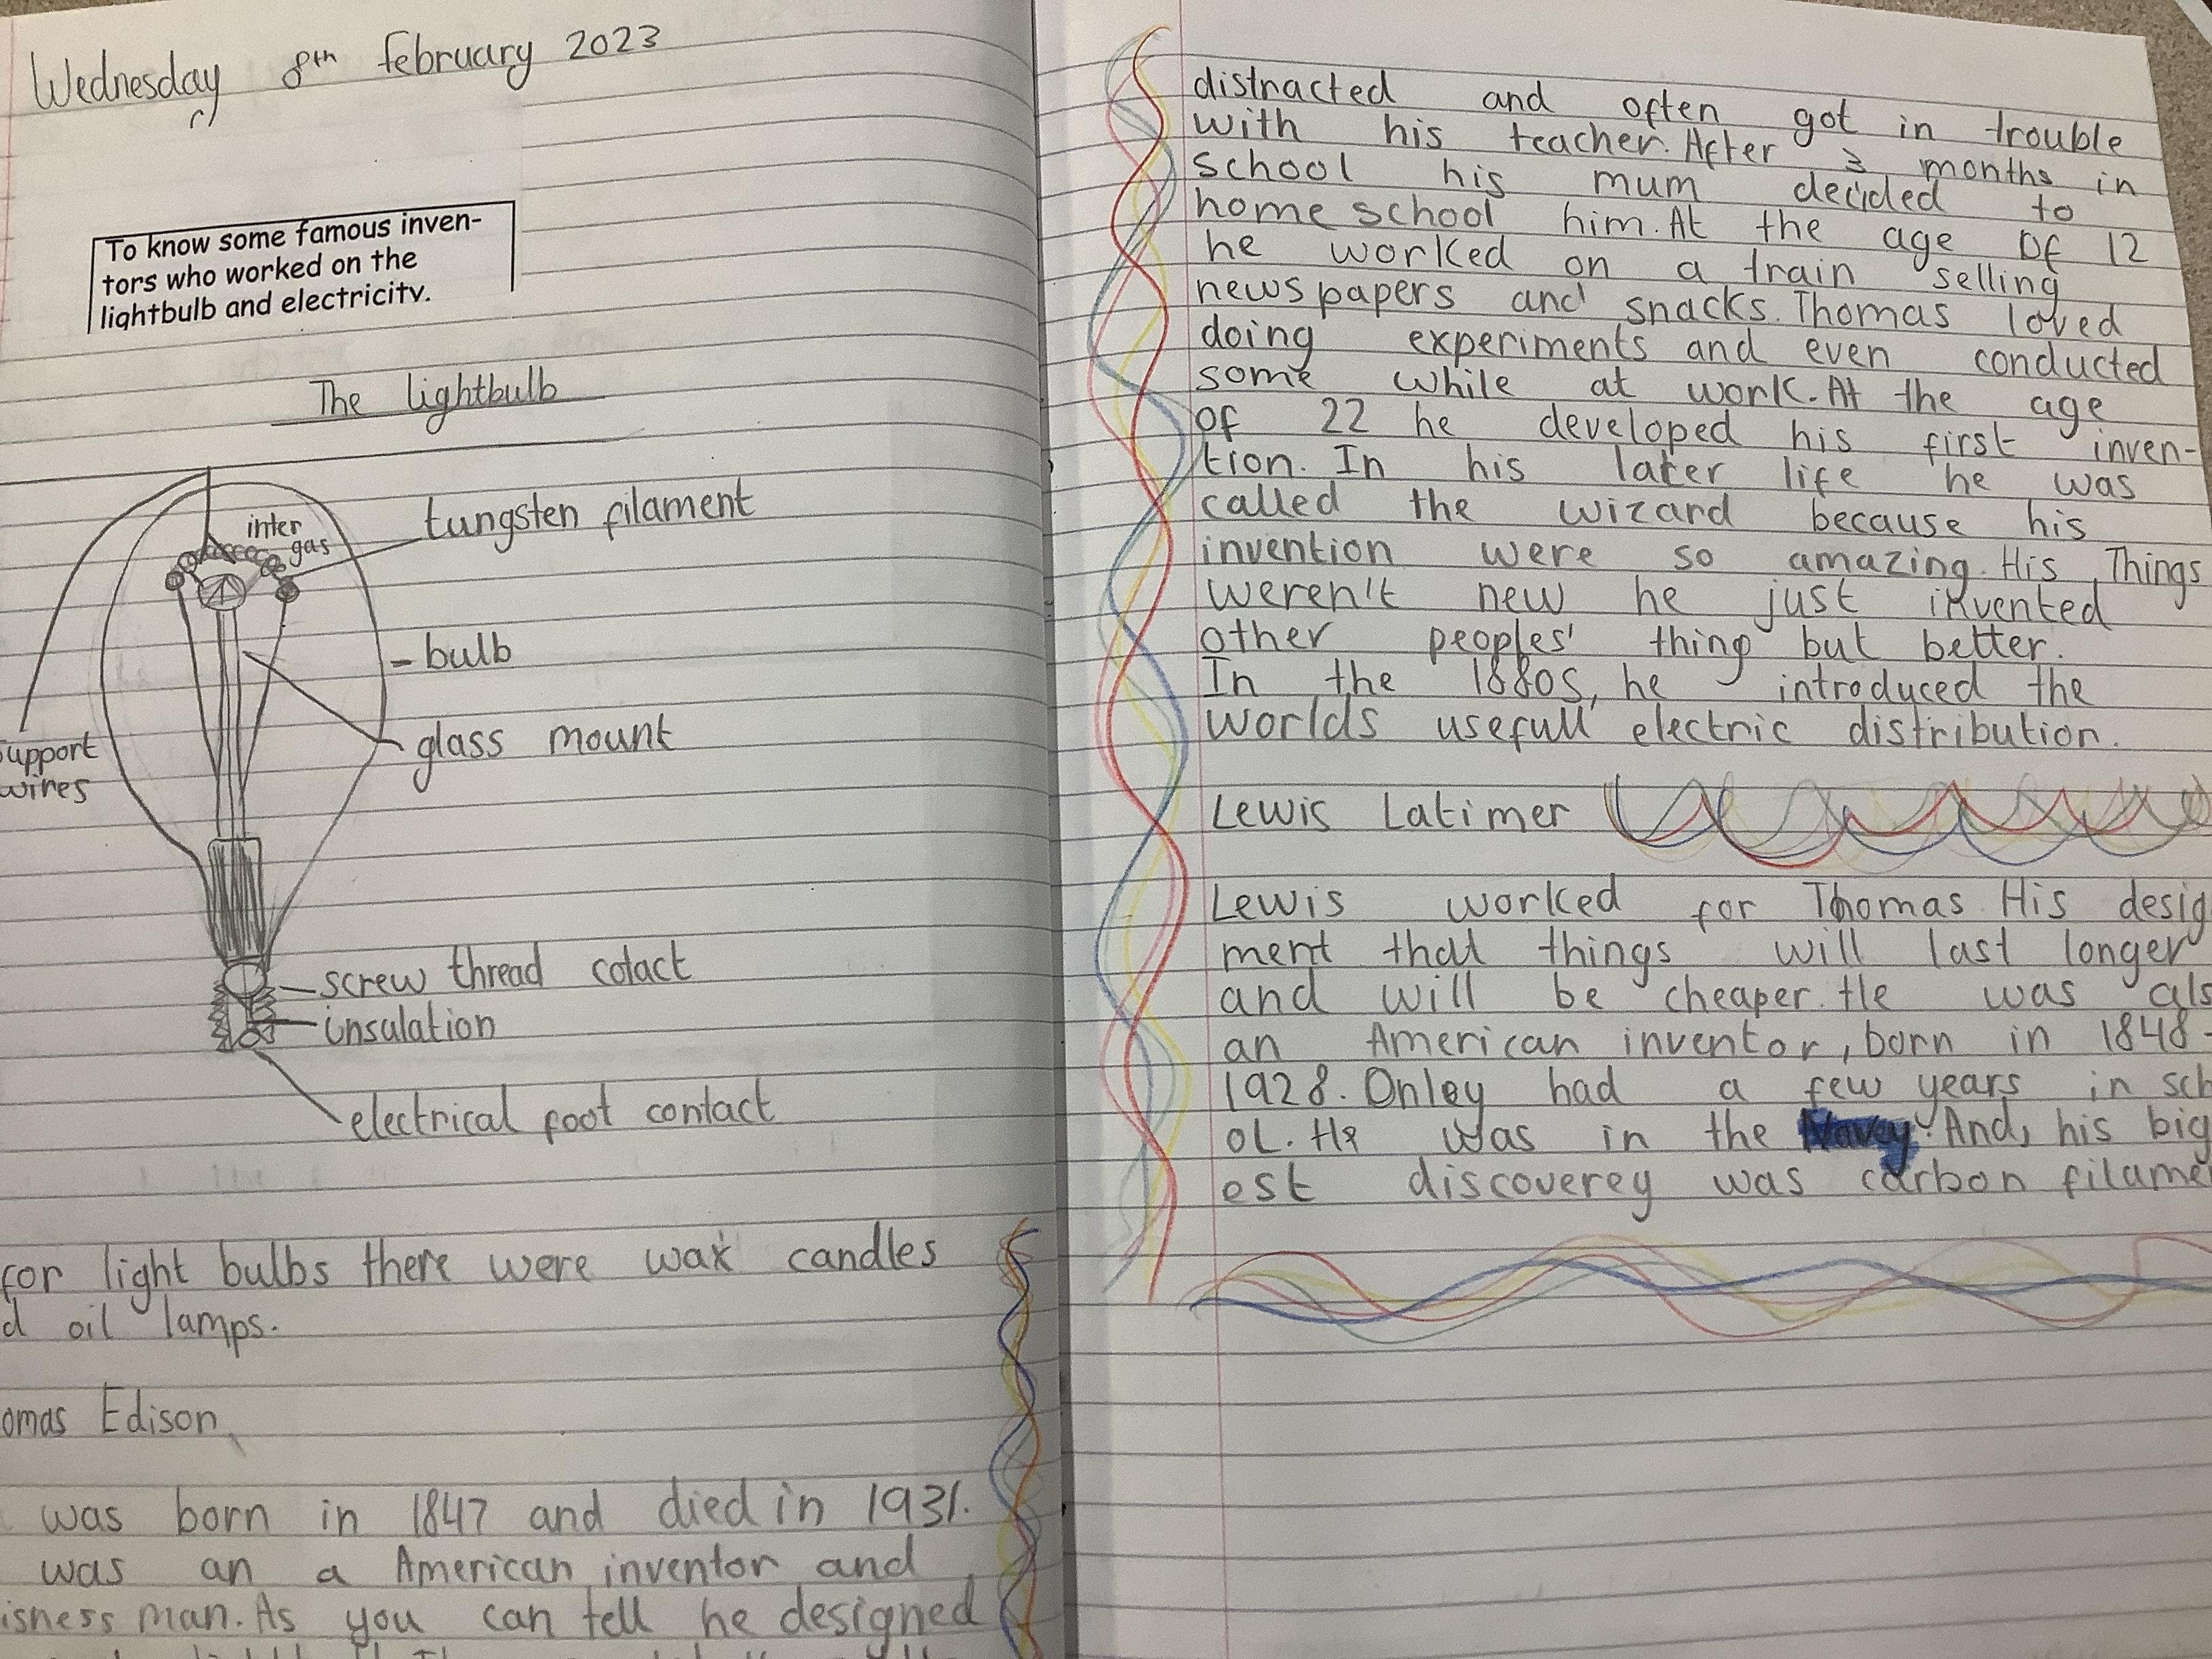 Wednesday 8th february 2023
To know some famous inven-
tors who worked on the
lightbulb and electricity.
The lightbulb
inter
gas
tungsten filament
- bulb
glass mount
support
wires
screw thread cotact
insulation
electrical foot contact
for light bulbs there were wax candles
d oil lamps.
omas Edison
was born in 1847 and died in 1931.
was an a American inventor and
isness man. As you can tell he designed
distracted and often got in trouble
with his teacher. After 3 months in
school his mum decided to
home school him. At the age of 12
he worked on a train selling
newspapers and snacks. Thomas loved
doing experiments and even conducted
some while at work. At the age
of 22 he developed his first inven-
tion. In his later life he was
called the wizard because his
invention were so amazing. His Things
weren't new he just invented
other peoples' thing but better.
In the 1880s, he introduced the
worlds usefull electric distribution.
Lewis Latimer
Lewis worked for Thomas. His desig
ment that things will last longer
and will be cheaper. He was als
an American inventor, born in 1848-
1928. Onley had a few years in sch
ol. He was in the Navey. And, his big
est discoverey was carbon filame